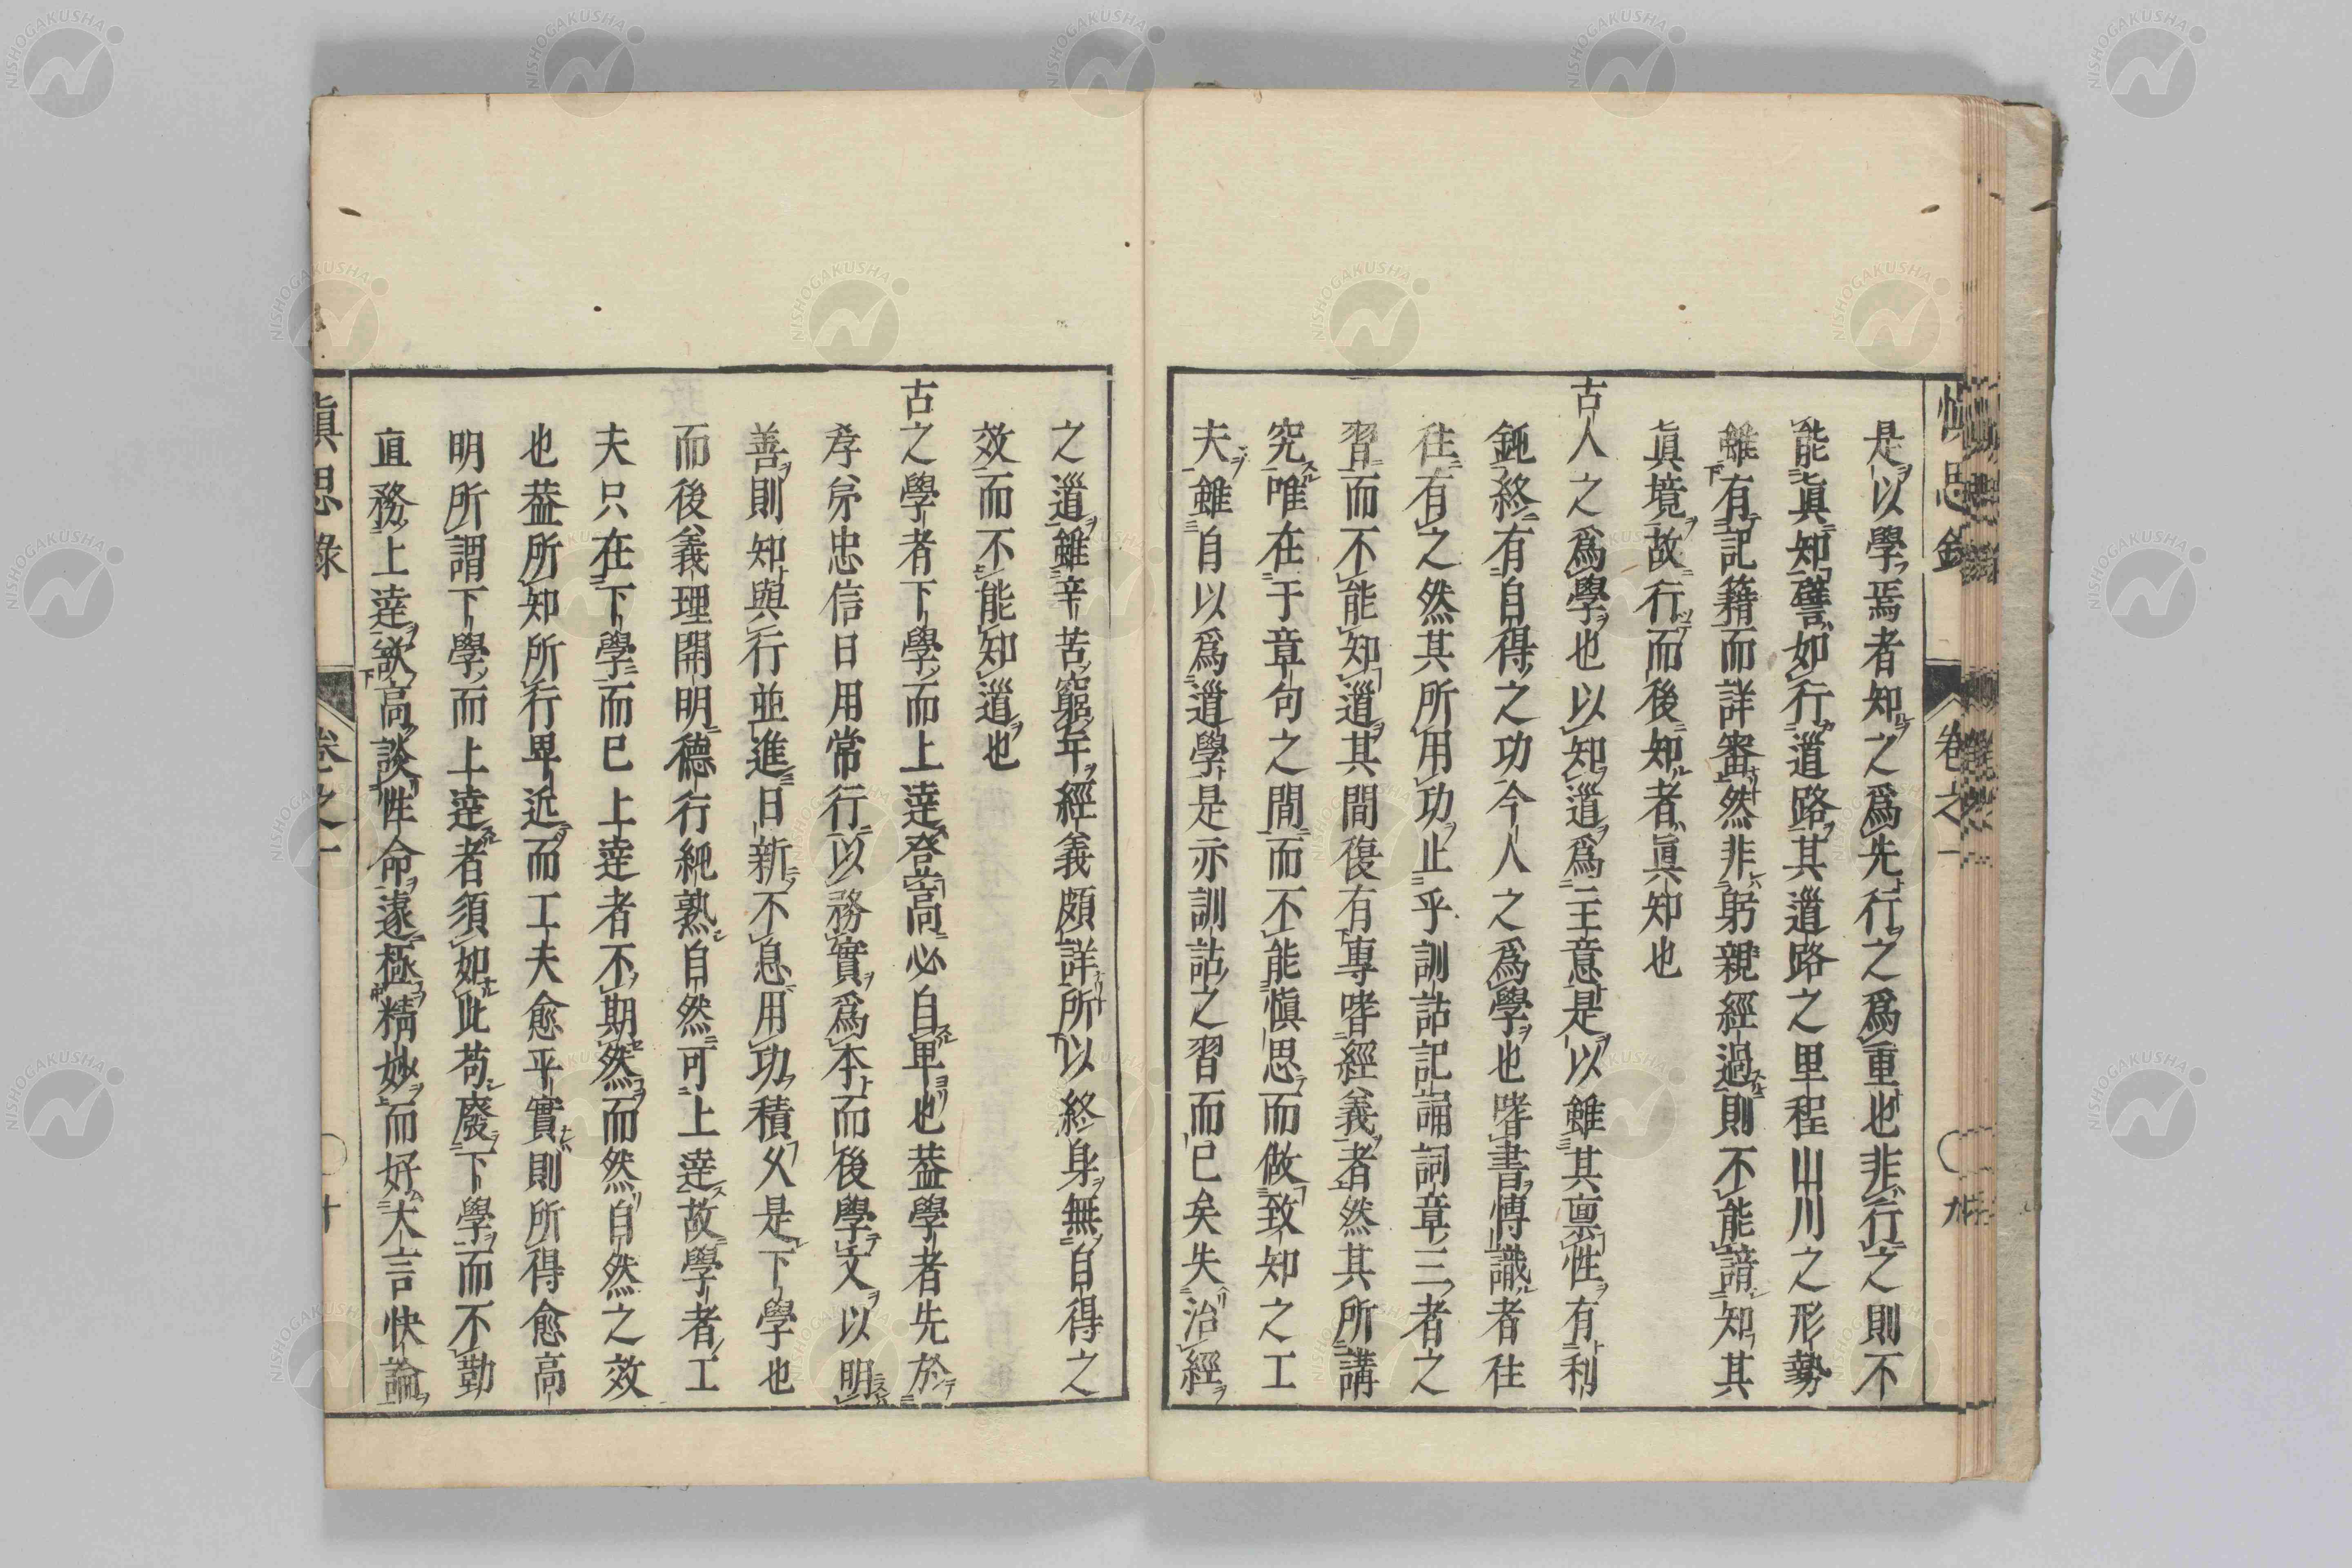 愼思錄 卷之一 〇九
是以學焉者知之爲先行之爲重也非行之則不
能眞知譬如行道路其道路之里程山川之形勢
雖有記籍而詳審然非躬親經過則不能諳知其
眞境故行而後知者眞知也
古人之爲學也以知道爲主意是以雖其禀性有利
鈍終有自得之功今人之爲學也嗜書愽識者往
往有之然其所用功止乎訓詁記誦詞章三者之
習而不能知道其間復有專嗜經義者然其所講
究唯在于章句之間而不能愼思而做致知之工
夫雖自以爲道學是亦訓詁之習而已矣失治經
之道雖辛苦窮年經義頗詳所以終身無自得之
效而不能知道也
古之學者下學而上達登高必自卑也葢學者先於
孝弟忠信日用常行以務實爲本而後學文以明
善則知與行並進日新不息用功積久是下學也
而後義理開明德行純熟自然可上達故學者工
夫只在下學而已上達者不期然而然自然之效
也葢所知所行卑近而工夫愈平實則所得愈高
明所謂下學而上達者須如此苟廢下學而不勤
直務上達欲高談性命遠極精妙而好大言快論
愼思錄 卷之一 〇十
NISHOGAKUSHA